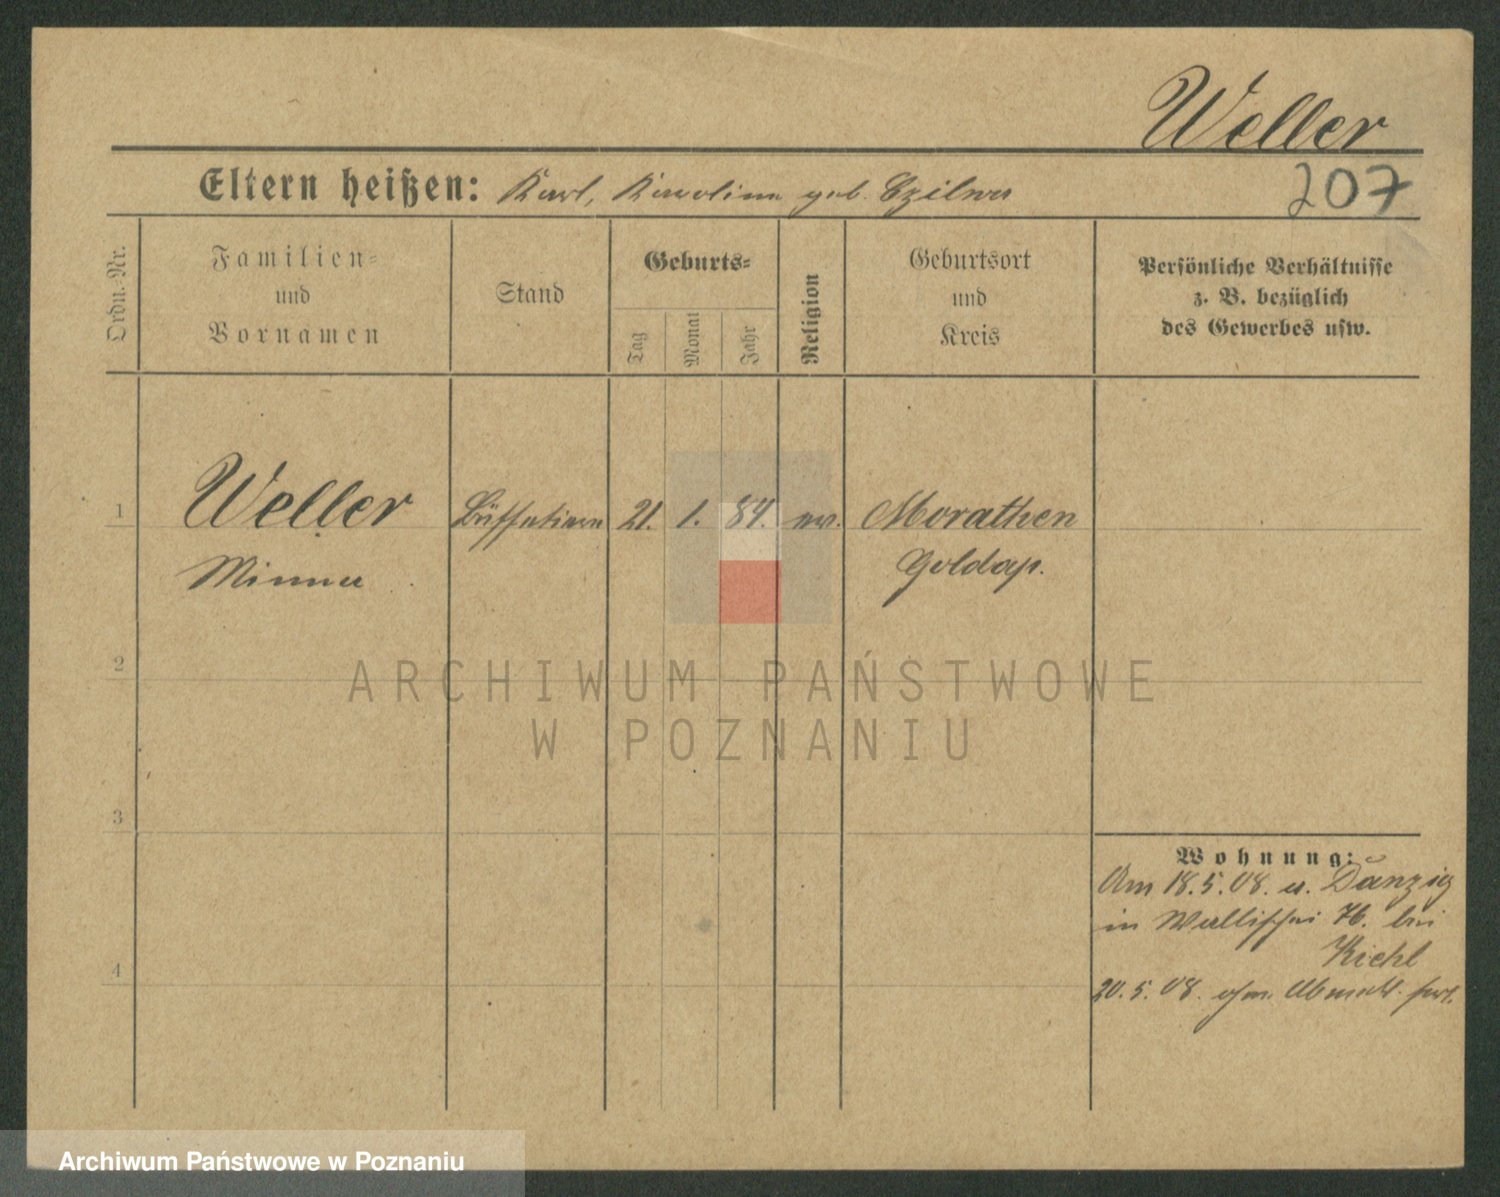 Weller
Eltern heißen: Karl, Karoline geb. Czilwa
207
Ordn.-Nr.
Familien-
und
Vornamen
Stand
Geburts-
Tag
Monat
Jahr
Religion
Geburtsort
und
Kreis
Persönliche Verhältnisse
z. B. bezüglich
des Gewerbes usw.
1
Weller
Minna
Büffetiere
21.
1.
84.
ev.
Morathen
Goldap.
2
3
4
Wohnung:
Am 18.5.08. a. Danzig
in Wallischei 76. bei
Kiehl
20. 5. 08. ohne Abmeld. fort.
ARCHIWUM PAŃSTWOWE
W POZNANIU
Archiwum Państwowe w Poznaniu